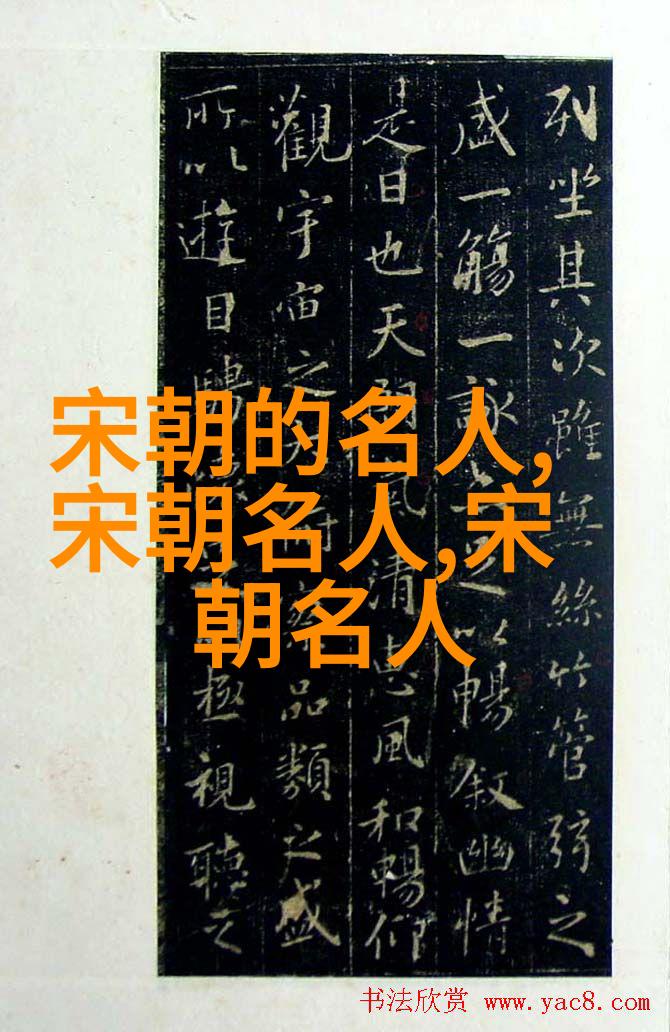 列坐其次雖無絲竹管弦之
盛一觴一詠足以暢叙幽情
是日也天朗氣清惠風和暢仰
觀宇宙之察品類之盛
所以遊目騁極視聽之
宋朝的名人,
宋朝名人,宋
朝名人
书法欣赏 www.yac8.com